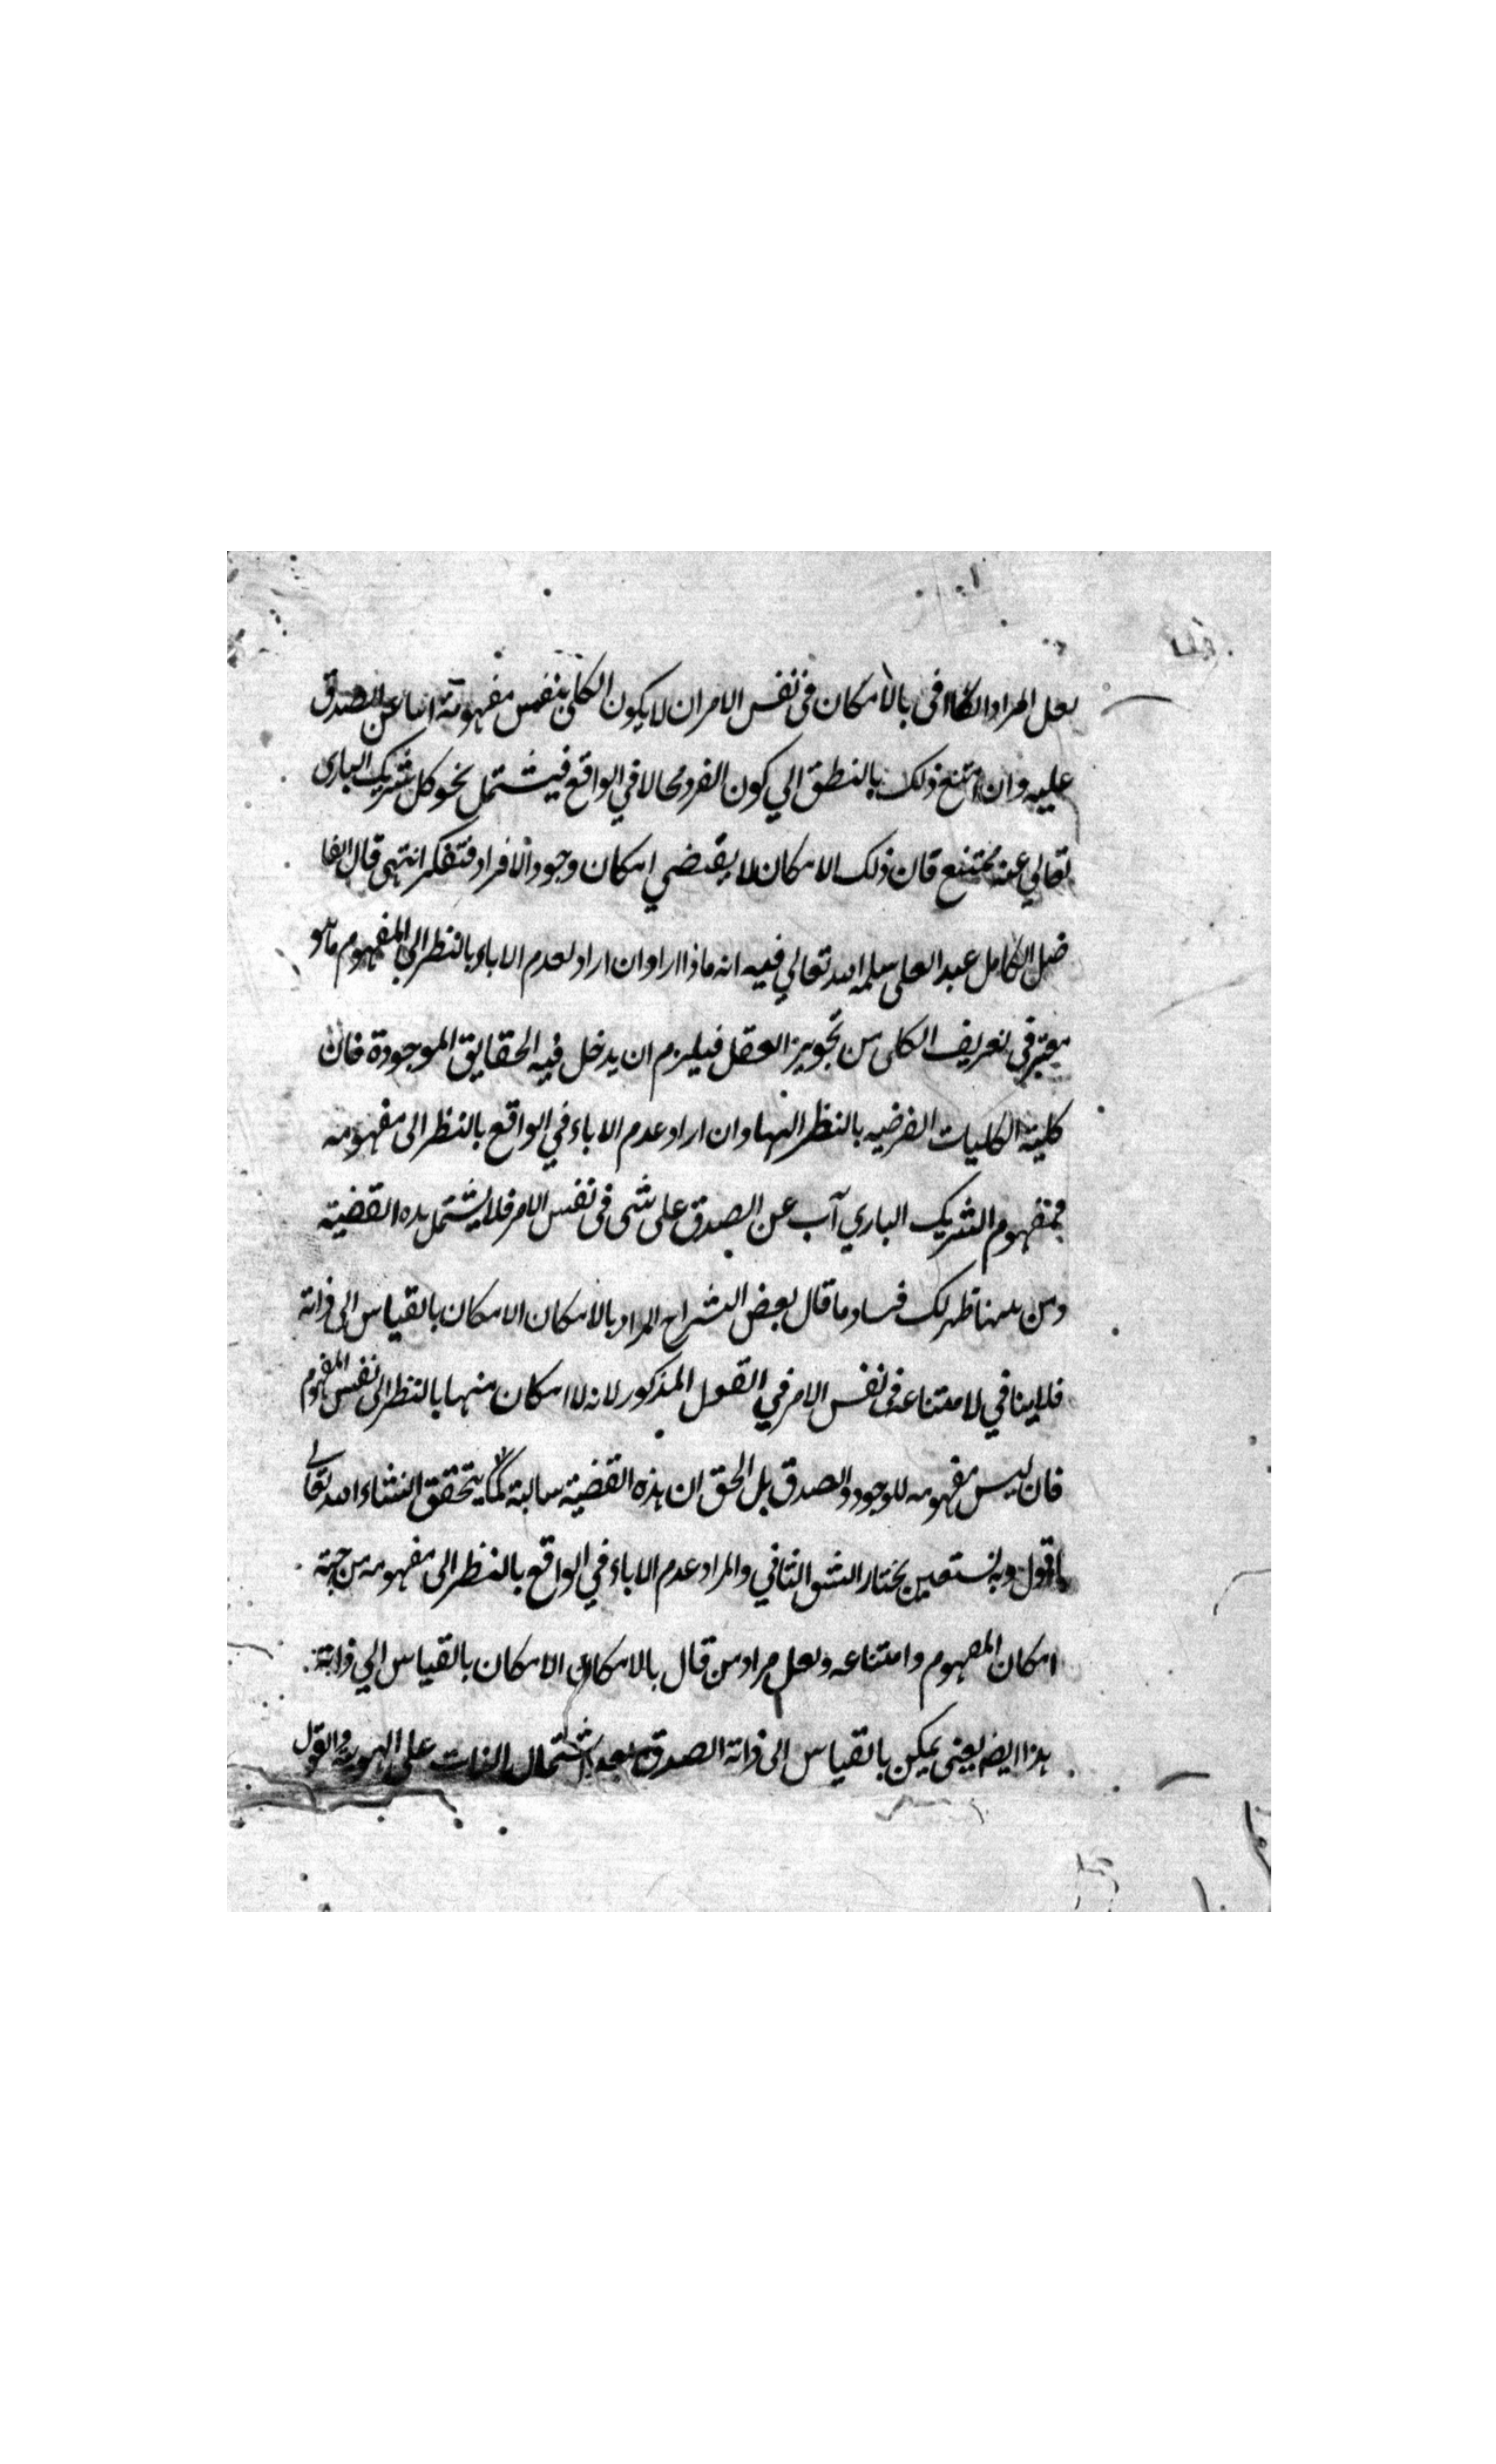 لعل المراد الكافى بالامكان فى نفس الامر ان لا يكون الكلى بنفس مفهومة ابيا عن الصدق
عليه وان امتنع ذلك بالنطق الي كون الفرد محالا في الواقع فيشتمل نحو كل شريك البارى
تعالي عنه ممتنع فان ذلك الامكان لا يقتضي امكان وجود الافراد فتفكر انتهى قال الفا
ضل الكامل عبد العلى سلمه الله تعالي فيه انه ماذا اراد ان اراد بعدم الاباء بالنظر الى المفهوم ما هو
معتبر في تعريف الكلى من تجويز العقل فيلزم ان يدخل فيه الحقايق الموجودة فان
كلية الكليات الفرضيه بالنظر اليها وان اراد عدم الاباء في الواقع بالنظر الى مفهومه
فمفهوم الشريك الباري آب عن الصدق على شى فى نفس الامر فلا يشتمل هذه القضية
ومن ههنا ظهر لك فساد ما قال بعض الشراح المراد بالامكان الامكان بالقياس الى ذاته
فلا ينافي لامتناعه فى نفس الامر في القول المذكور لانه لا امكان منها بالنظر الى نفس المفهوم
فان ليس مفهومه للوجود والصدق بل الحق ان هذه القضية سالبة كما يتحقق انشاء الله تعالى
اقول وبه نستعين نختار الشق الثاني والمراد عدم الاباء في الواقع بالنظر الى مفهومه من جهة
امكان المفهوم وامتناعه ولعل مراد من قال بالامكان الامكان بالقياس الي ذاته
هذا ايضا يعنى يمكن بالقياس الى ذاته الصدق بعد اشتمال الذات على الهوية والقول